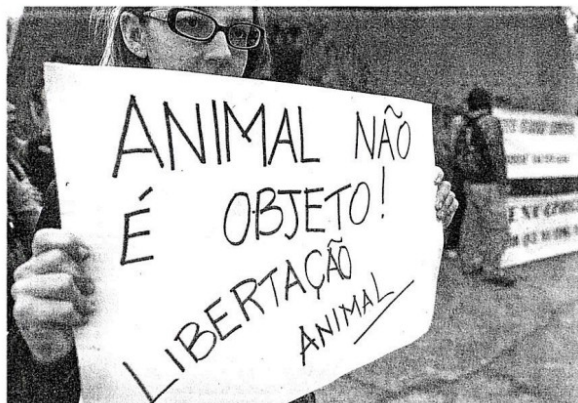 ANIMAL NÃO
É OBJETO!
LIBERTAÇÃO
ANIMAL